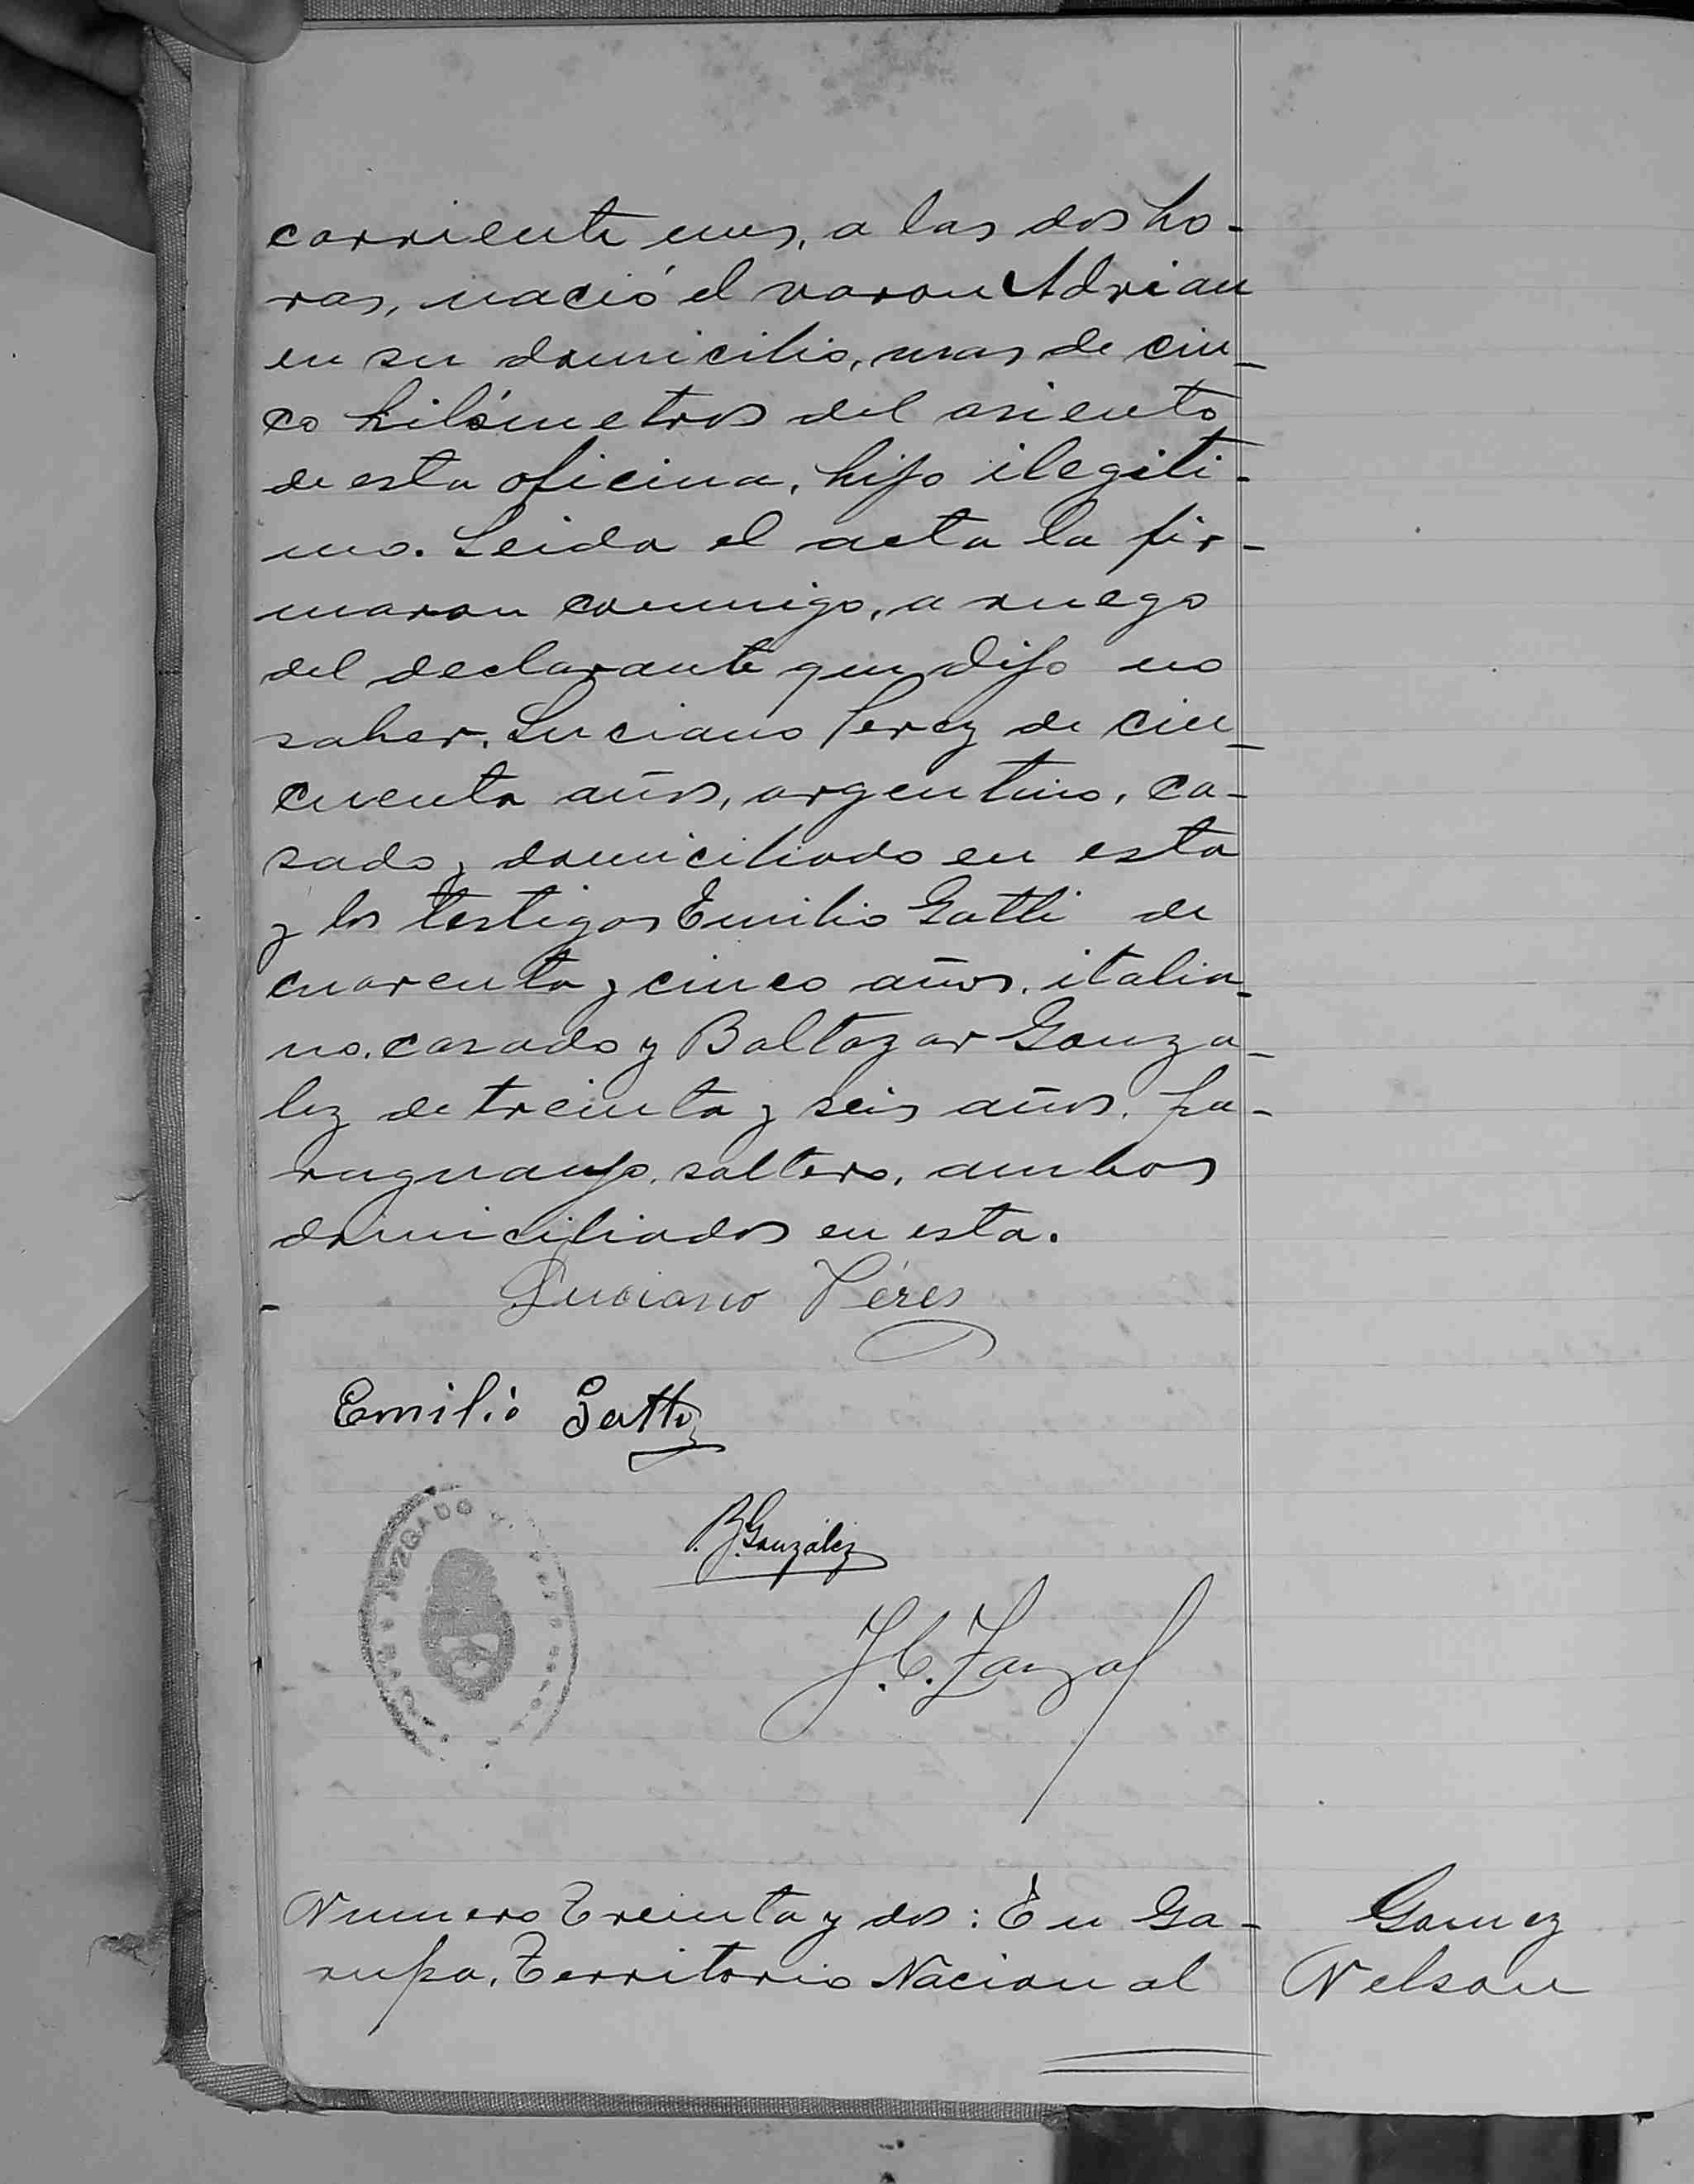 corriente mes, a las dos ho-
ras, nació el varon Adrian
en su domicilio, mas de cin-
co kilómetros del asiento
de esta oficina, hijo ilegiti-
mo. Leida el acta la fir-
maron conmigo, a ruego
del declarante que dijo no
saber, Luciano Perez de cin-
cuenta años, argentino, ca-
sado, domiciliado en esta
y los testigos Emilio Gatti de
cuarenta y cinco años, italia-
no, casado y Baltazar Gonza-
lez de treinta y seis años, pa-
raguayo, soltero, ambos
domiciliados en esta.
Luciano Péres
Emilio Gatti
B. González
JUZGADO
J. C.
Numero Treinta y dos: En Ga-
rupa, Territorio Nacional
Gomez
Nelson